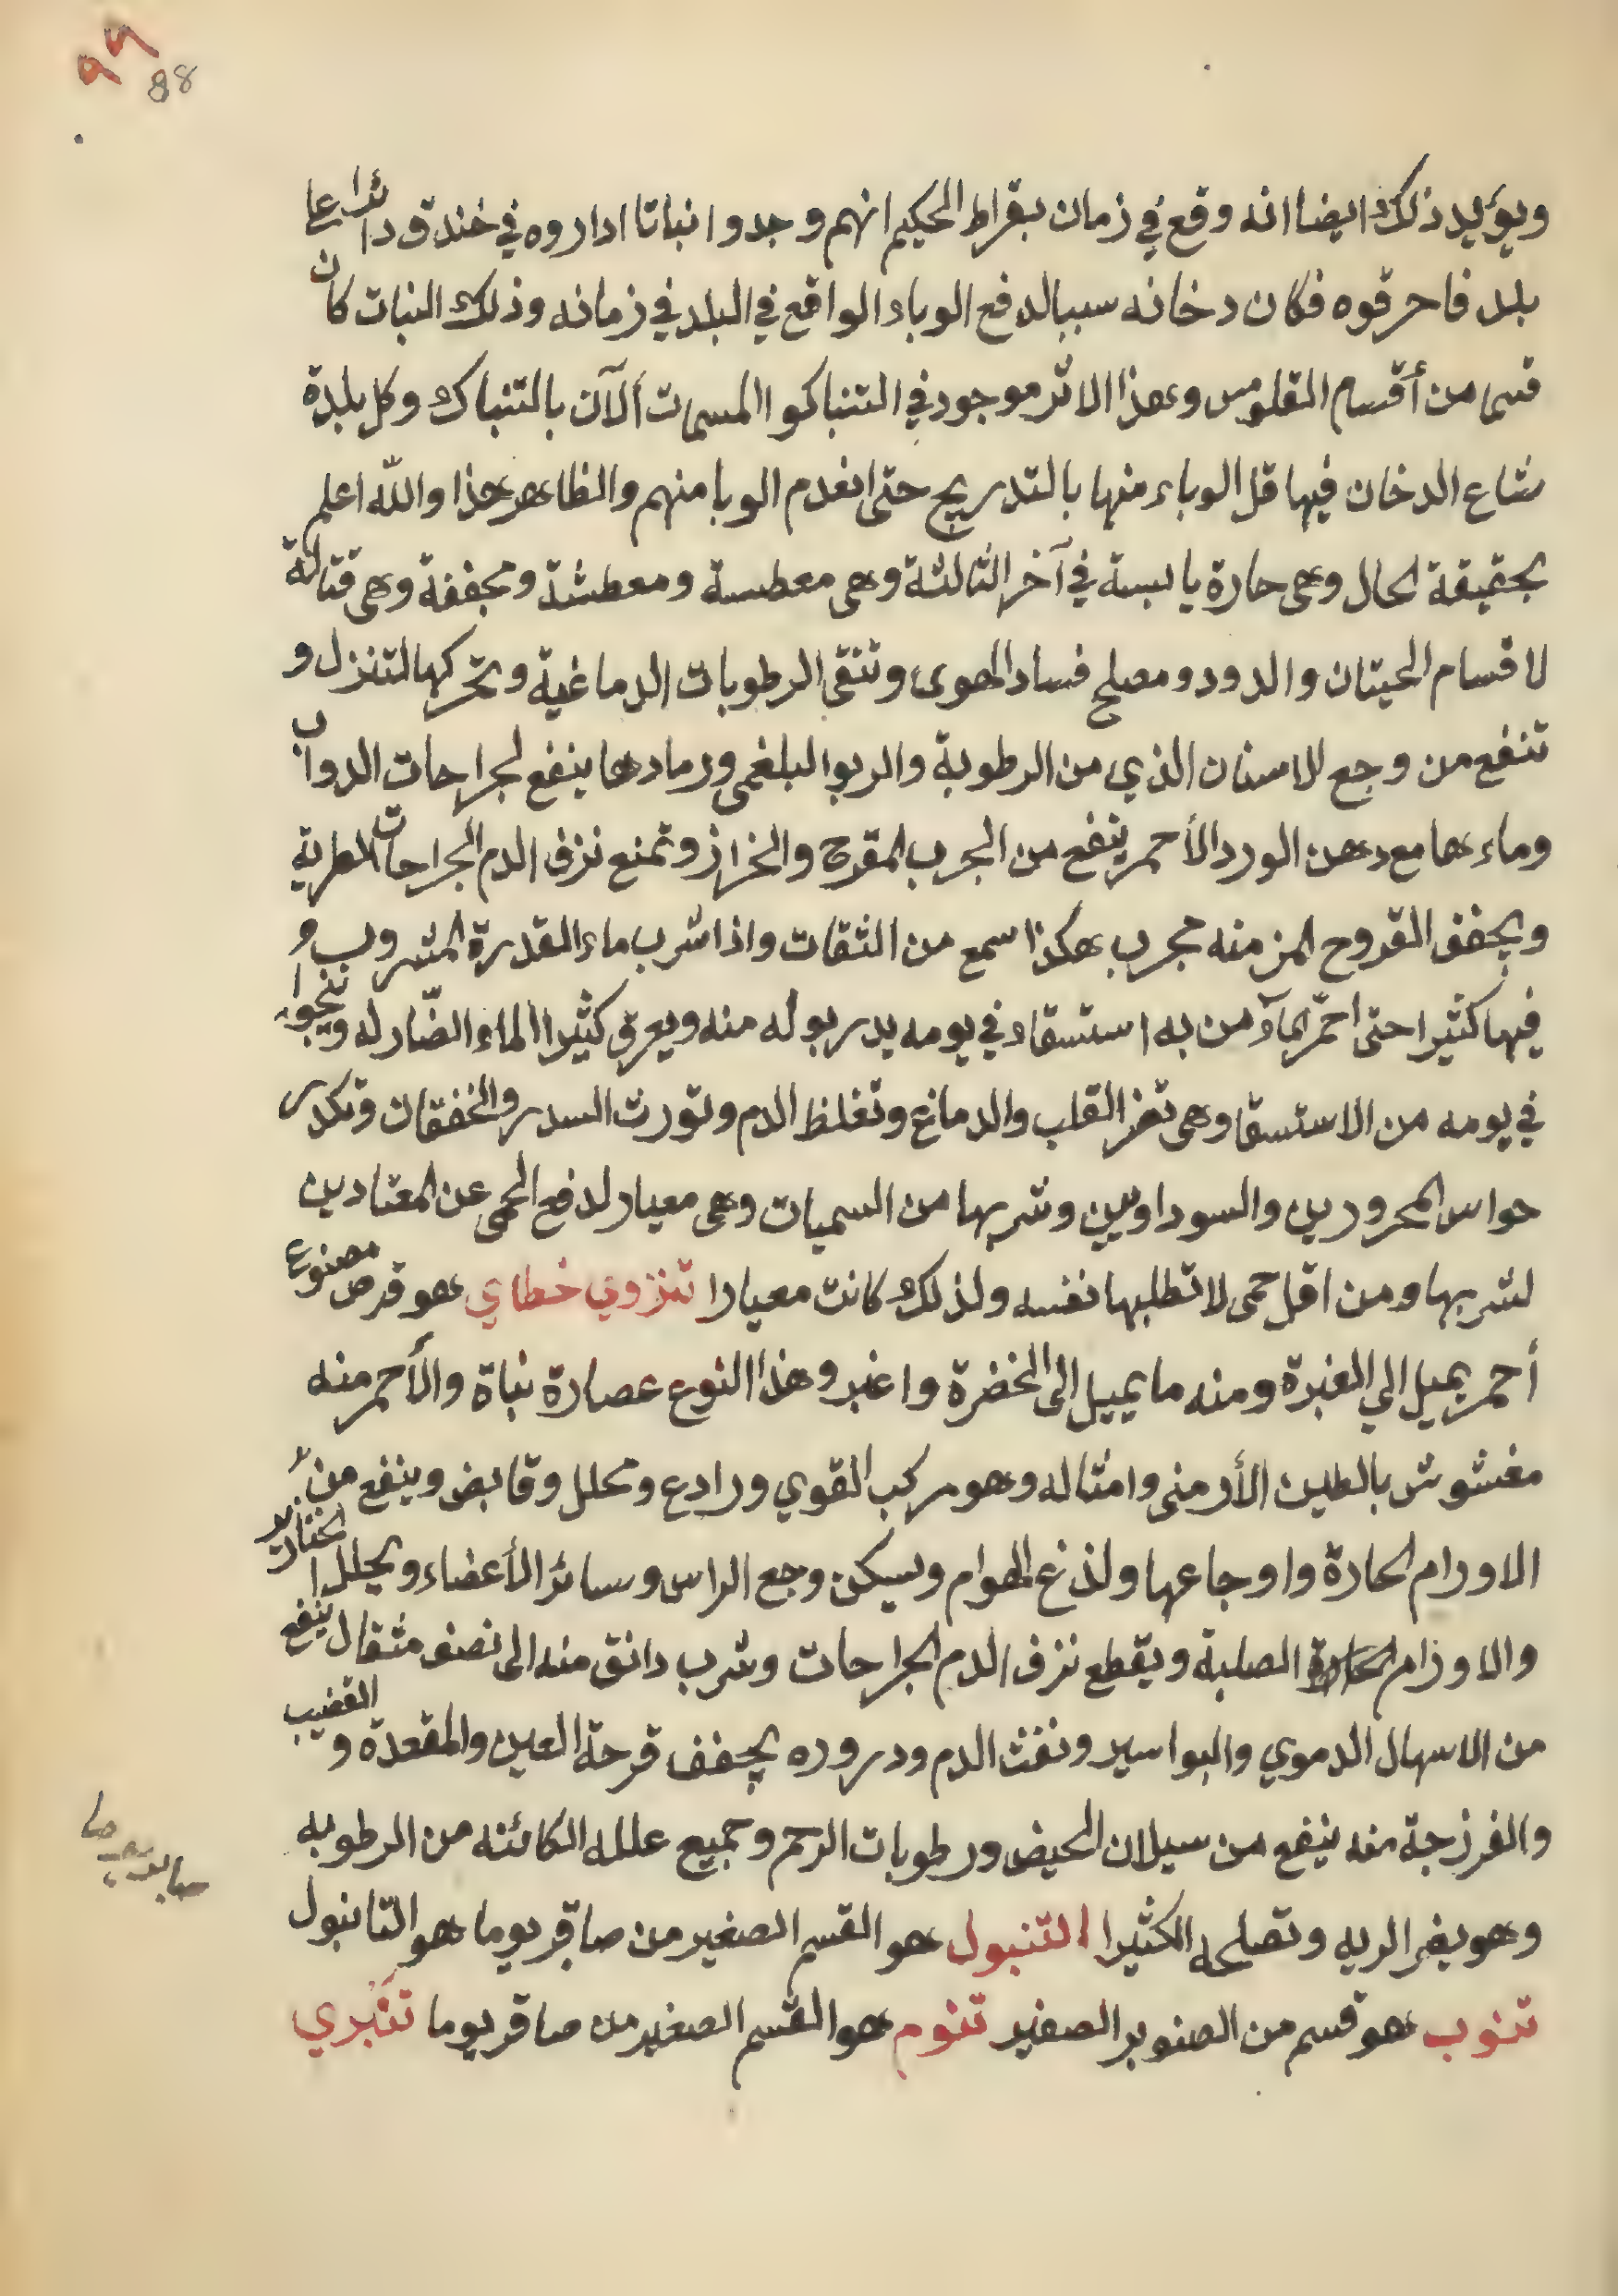 ٩٦
88
ويؤيد ذلك ايضا انه وقع في زمان بقراط الحكيم انهم وجدوا نباتا اداروه في خندق
بلد فاحرقوه فكان دخانه سببا لدفع الوباء الواقع في البلد في زمانه وذلك النبات كان
قسى من أقسام القلومس وهذا الاثر موجود في التنباكو المسمات ألآن بالتنباك وكل بلدة
شاع الدخان فيها قل الوباء منها بالتدريج حتى انعدم الوبا منهم والظاهر هذا والله اعلم
بحقيقة الحال وهى حارة يابسة في آخر الثالثة وهى معطسة ومعطشة ومجففة وهى قتالة
لاقسام الحيتان والدود ومصلح فساد الهوى وتنقى الرطوبات الدماغية وتحركها لتنزل و
تنفع من وجع الاسنان الذي من الرطوبة والربو البلغمى ورمادها ينفع لجراحات الدواب
وماءها مع دهن الورد الأحمر ينفع من الجرب المقرح والخراز وتمنع نزف الدم الجراحات الطرية
ويجفف القروح المزمنه مجرب هكذا سمع من الثقات واذا شرب ماء القدرة المشروب و
فيها كثيرا حتى احمّر المآء من به استسقاء في يومه يدر بوله منه ويعرق كثيرا الماء الضّار له وينجوا
في يومه من الاستسقا وهى تغز القلب والدماغ وتغلظ الدم وتورث السدر والخفقان وتكدر
حواس المحرورين والسوداويين وشربها من السميات وهى معيار لدفع الحمى عن المعتادين
لشربها ومن اقل حمى لا تطلبها نفسه ولذلك كانت معيارا تنزوي خطاي هو قرص مصنوع
أحمر يميل الي الغبرة ومنه ما يميل الى الخضرة واغبر وهذا النوع عصارة نباة والأحمر منه
مغشوش بالطين الأرمنى وامثاله وهو مركب القوي ورادع ومحلل وقابض وينفع من
الاورام الحادة واوجاعها ولذغ الهوام ويسكن وجع الراس وسائر الأعضاء ويحلل الخنازير
والاورام الصلبة ويقطع نزف الدم الجراحات وشرب دانق منه الى نصف مثقال ينفع
من الاسهال الدموي والبواسير ونفث الدم ودروره يجفف قرحة العين والمقعدة و القضيب
والفرزجة منه ينفع من سيلان الحيض ورطوبات الرحم وجميع علله الكائنه من الرطوبه
وهو يضر الريه وتصلحه الكثيرا التنبول هو القسم الصغير من صاقريوما هو التانبول
تنوب هو قسم من الصنوبر الصغير تنوم هو القسم الصغير من صاقريوما تنبري